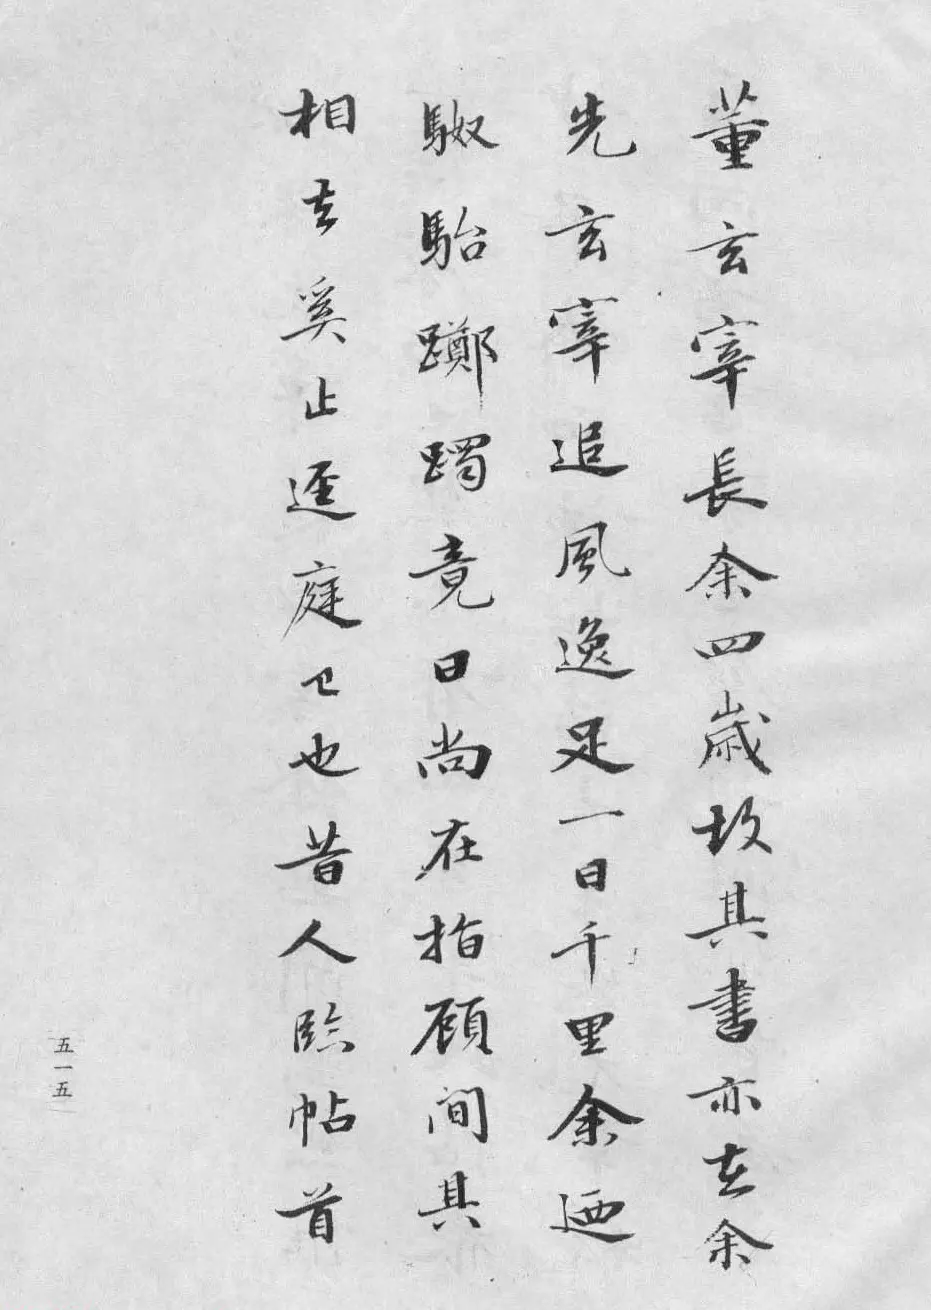 董玄宰長余四歲故其書亦在余
先玄宰追風逸足一日千里余迺
駑駘躑躅竟日尚在指顧間其
相去奚止逕庭已也昔人臨帖首
五一五